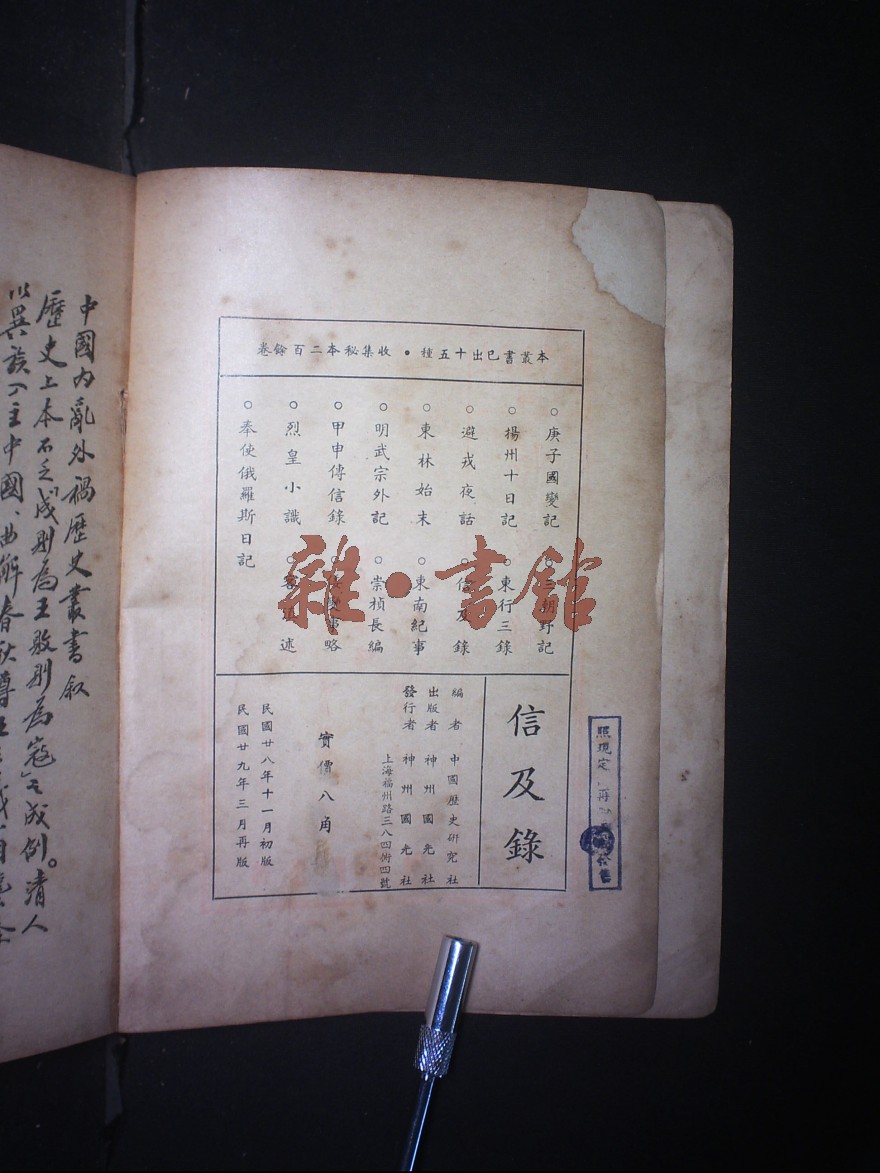 本叢書已出十五種•收集秘本二百餘卷
○庚子國變記
○三朝野記
○揚州十日記
○東行三錄
○避戎夜話
○信及錄
○東林始末
○東南紀事
○明武宗外記
○崇禎長編
○甲申傳信錄
略
○烈皇小識
述
○奉使俄羅斯日記
信及錄
編者 中國歷史研究社
出版者 神州國光社
發行者 神州國光社
上海福州路三八四衖四號
實價八角
民國廿八年十一月初版
民國廿九年三月再版
照現定
中國內亂外禍歷史叢書敘
歷史上本不乏「成則為王敗則為寇」之成例。清人
以異族入主中國、曲解春秋尊
雜•書館